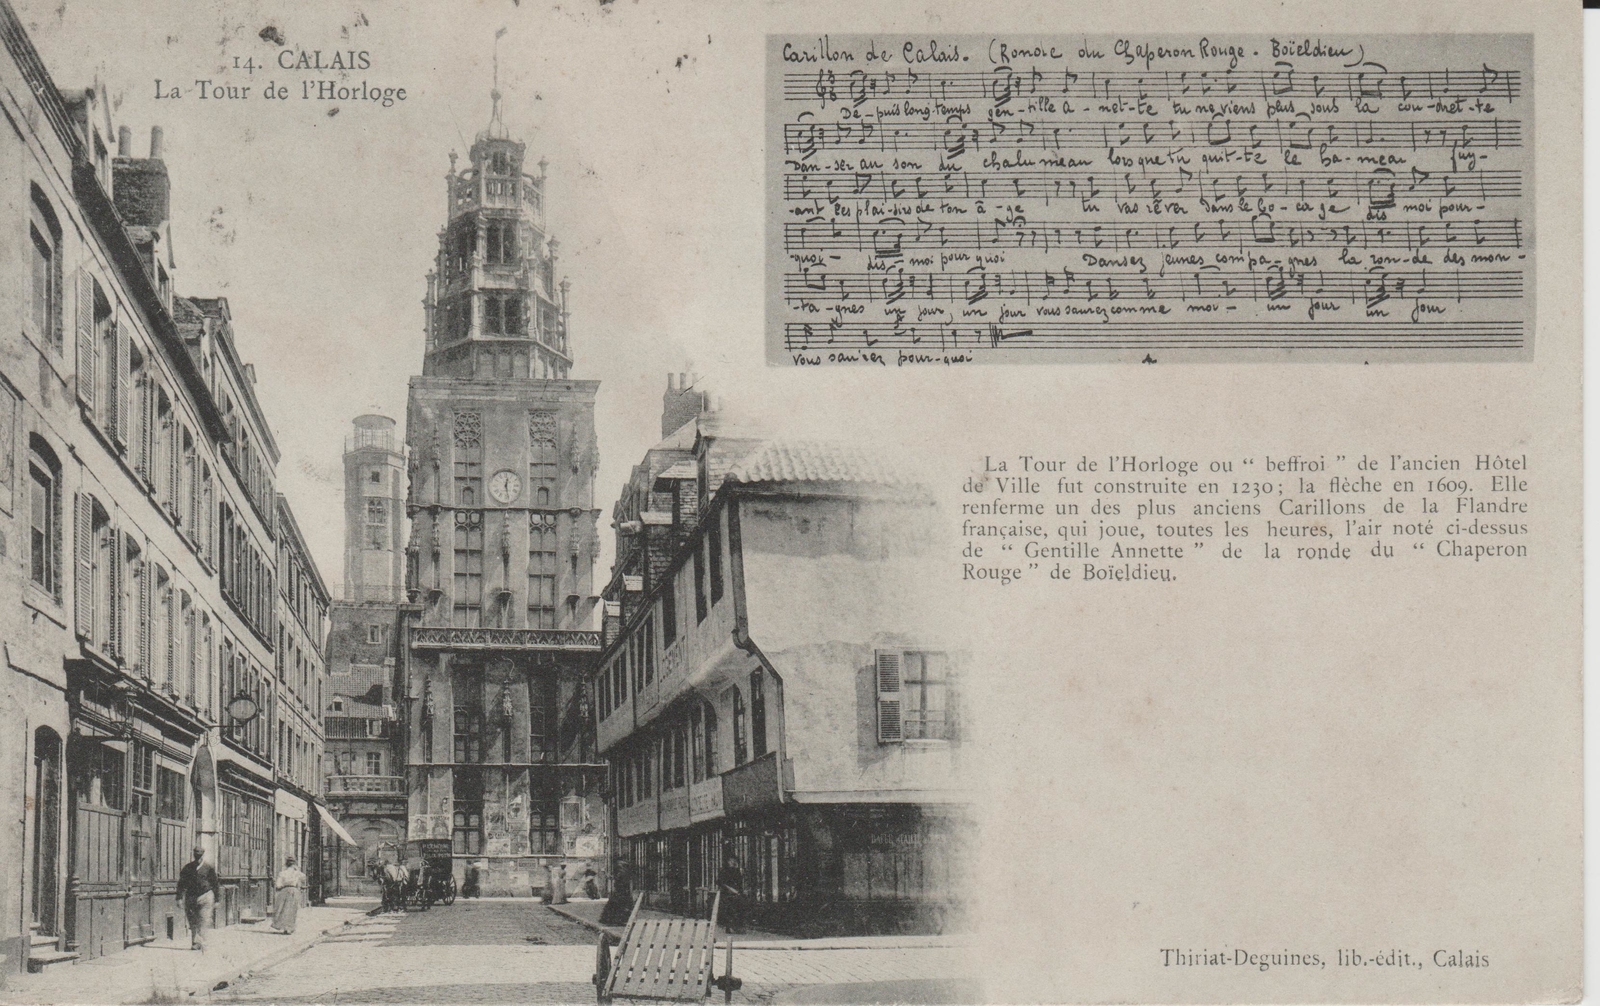 14. CALAIS
La Tour de l'Horloge
Carillon de Calais. (Ronde du Chaperon Rouge - Boïeldieu)
De-puis long-temps gen-tille a-net-te tu ne viens plus sous la cou-dret-te
Dan-ser au son du chalumeau lors que tu quit-te le ha-meau fuy-
-ant les plai-sirs de ton â-ge tu vas rêver dans le bo-ca ge dis moi pour-
-quoi- dis-moi pour quoi Dansez jeunes compa-gnes la ron-de des mon-
-ta-gnes un jour, un jour vous saurez comme moi- un jour un jour
vous saurez pour-quoi
La Tour de l'Horloge ou “ beffroi ” de l'ancien Hôtel
de Ville fut construite en 1230; la flèche en 1609. Elle
renferme un des plus anciens Carillons de la Flandre
française, qui joue, toutes les heures, l'air noté ci-dessus
de “ Gentille Annette ” de la ronde du “ Chaperon
Rouge ” de Boïeldieu.
Thiriat-Deguines, lib.-édit., Calais